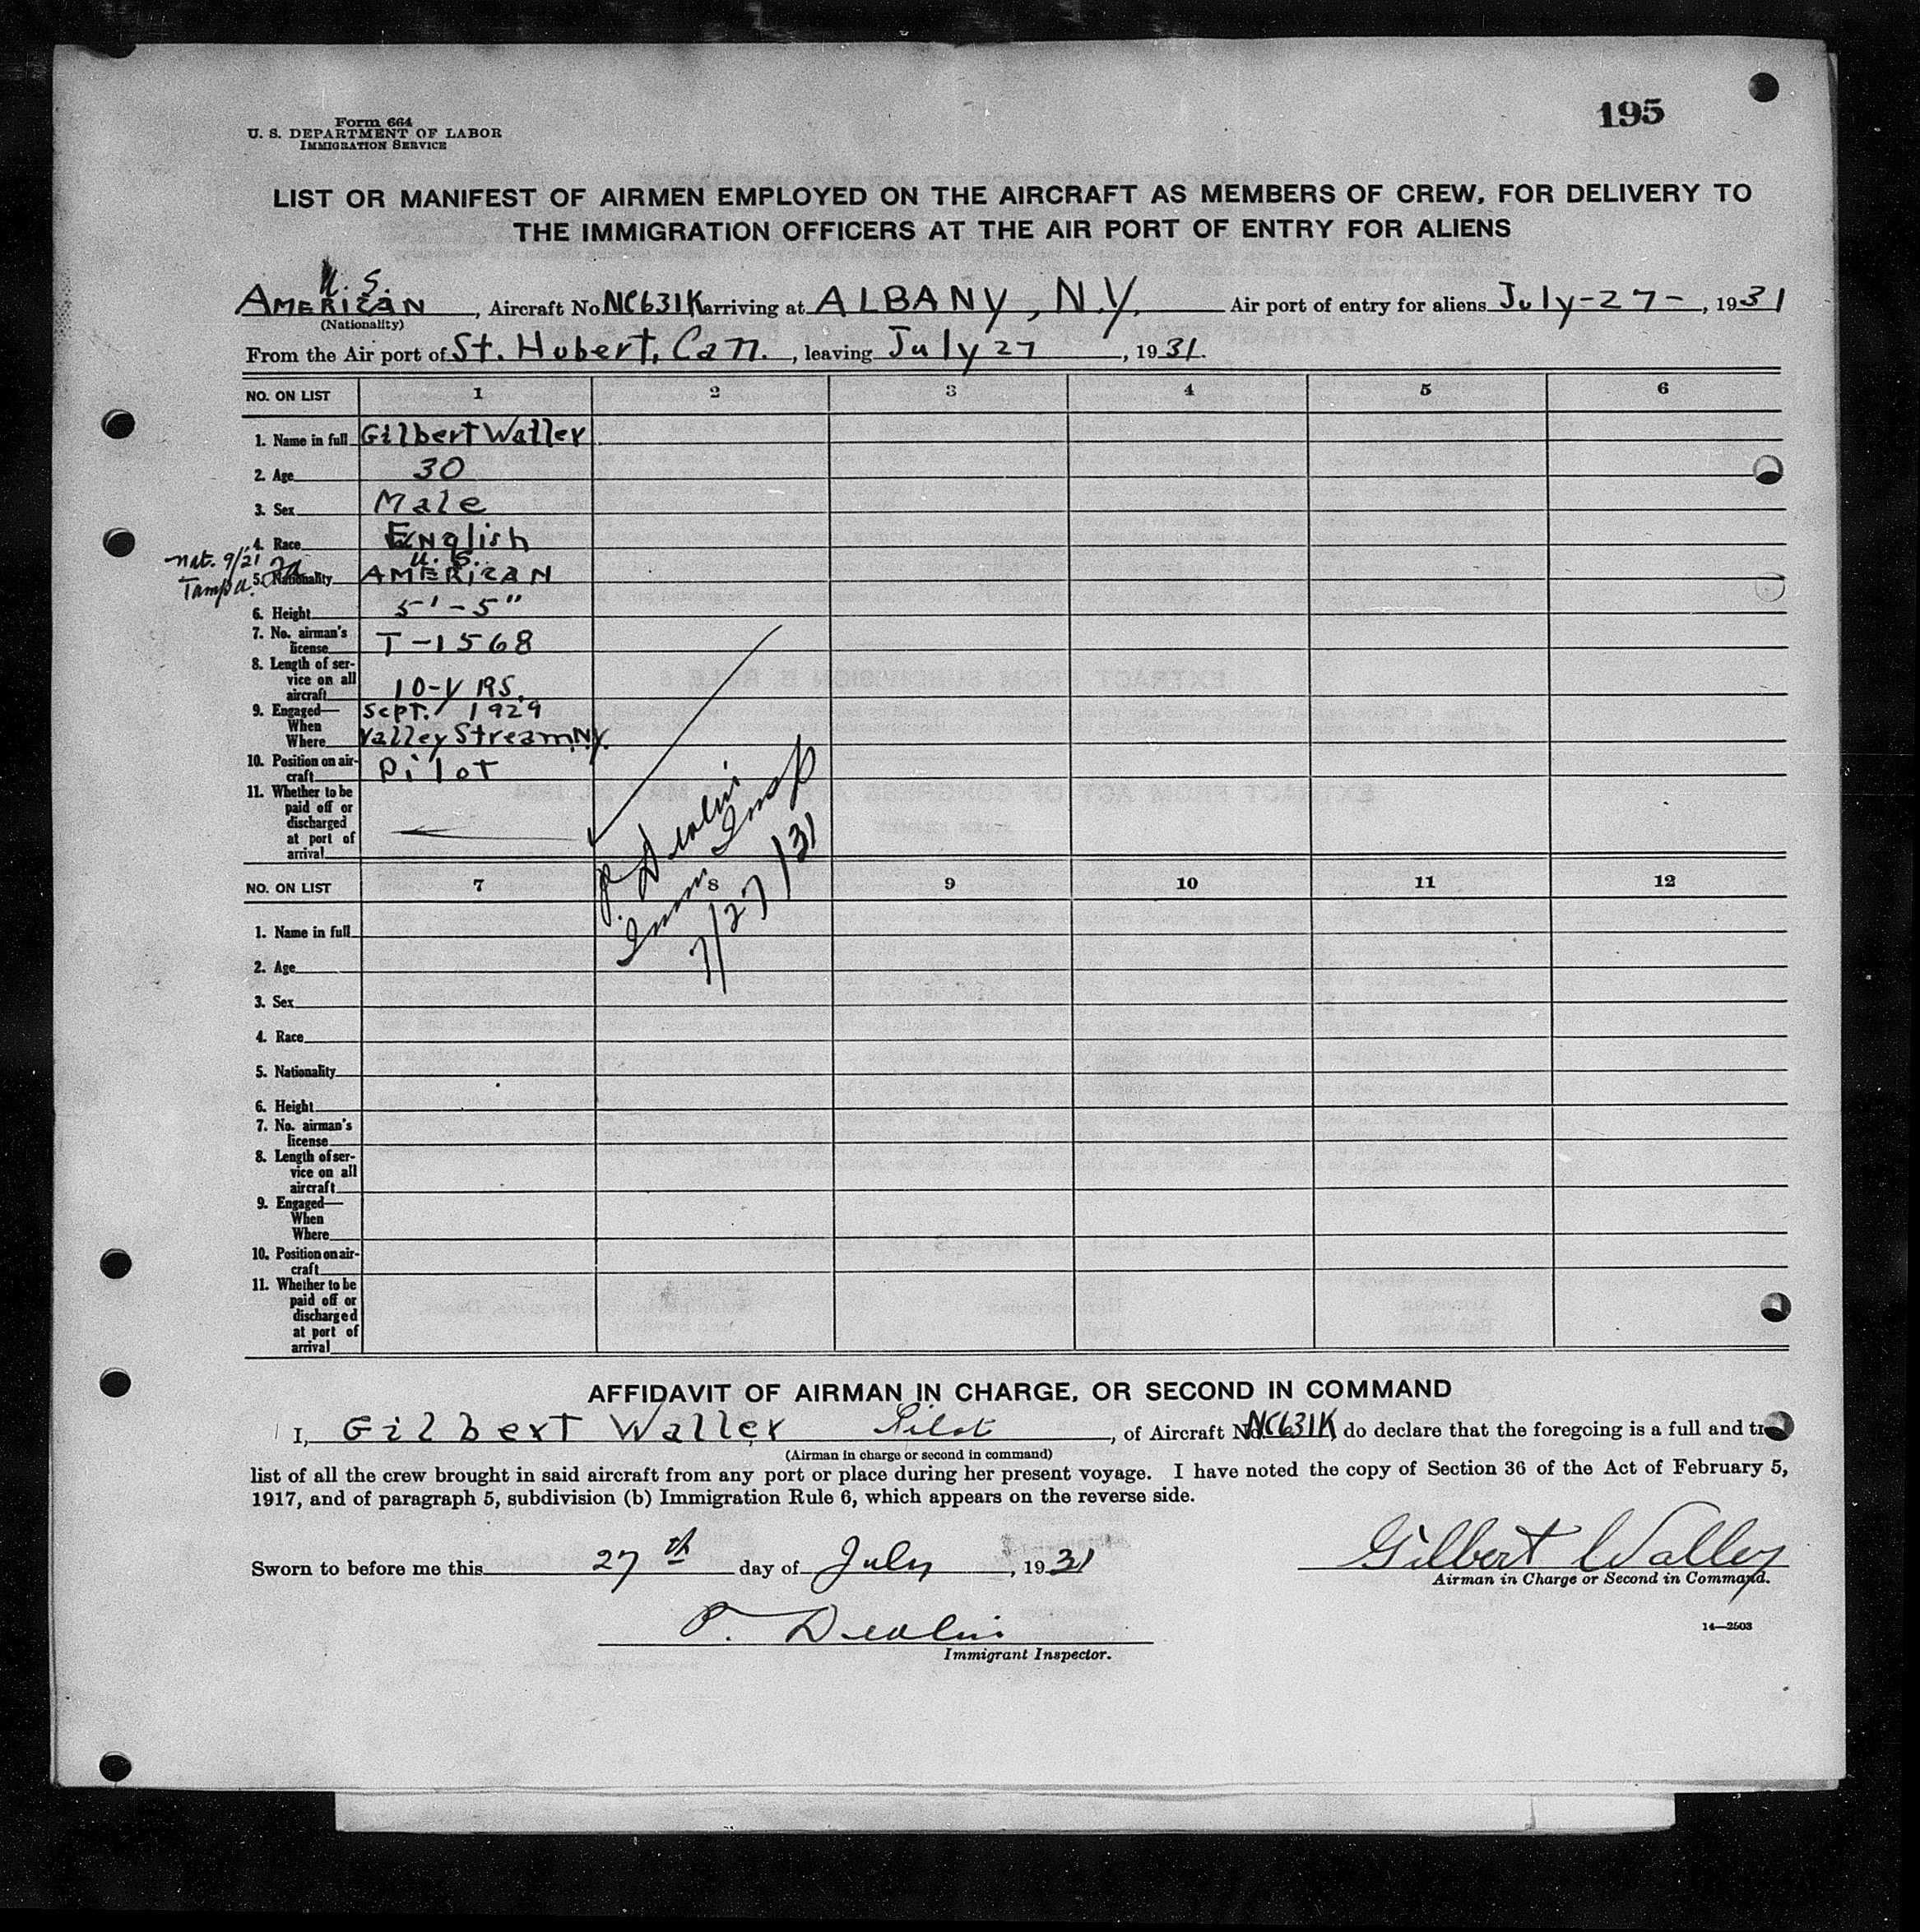 195
Form 664
U. S. DEPARTMENT OF LABOR
IMMIGRATION SERVICE
LIST OR MANIFEST OF AIRMEN EMPLOYED ON THE AIRCRAFT AS MEMBERS OF CREW, FOR DELIVERY TO
THE IMMIGRATION OFFICERS AT THE AIR PORT OF ENTRY FOR ALIENS
U. S.
AMERICAN, Aircraft No. NC631K arriving at ALBANY, N.Y. Air port of entry for aliens July-27-, 1931
(Nationality)
From the Air port of St. Hubert, Can., leaving July 27, 1931.
NO. ON LIST 1 2 3 4 5 6
1. Name in full Gilbert Waller
2. Age 30
3. Sex Male
4. Race English
nat. 9/21
U. S.
Tampa.
5. Nationality AMERICAN
6. Height 5'-5"
7. No. airman's
license T-1568
8. Length of ser-
vice on all
aircraft 10-YRS.
9. Engaged— Sept. 1929
When
Where Valley Stream, N.Y.
10. Position on air-
craft Pilot
11. Whether to be
paid off or
discharged
at port of
arrival
P. Devlin
Imm Insp
7/27/31
NO. ON LIST 7 8 9 10 11 12
1. Name in full
2. Age
3. Sex
4. Race
5. Nationality
6. Height
7. No. airman's
license
8. Length of ser-
vice on all
aircraft
9. Engaged—
When
Where
10. Position on air-
craft
11. Whether to be
paid off or
discharged
at port of
arrival
AFFIDAVIT OF AIRMAN IN CHARGE, OR SECOND IN COMMAND
I, Gilbert Waller Pilot, of Aircraft No. NC631K, do declare that the foregoing is a full and tr
(Airman in charge or second in command)
list of all the crew brought in said aircraft from any port or place during her present voyage. I have noted the copy of Section 36 of the Act of February 5,
1917, and of paragraph 5, subdivision (b) Immigration Rule 6, which appears on the reverse side.
Gilbert Waller
Sworn to before me this 27th day of July, 1931
Airman in Charge or Second in Command.
P. Devlin
Immigrant Inspector.
14—2503